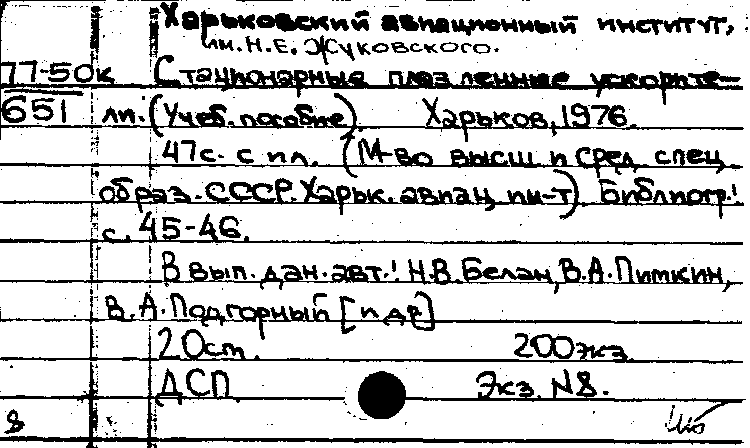 Харьковский авиационный институт,
им. Н.Е. Жуковского.
77-50к Стационарные плазменные ускорите-
651 ли. (Учеб. пособие). Харьков, 1976.
47с. с ил. (М-во высш и сред спец
образ. СССР. Харьк. авиац ин-т). Библиогр.:
с. 45-46.
В вып. дан. авт.: Н.В. Белан, В.А. Пимкин,
В.А. Подгорный [и др]
20см. 200экз.
ДСП. Экз. №8.
8